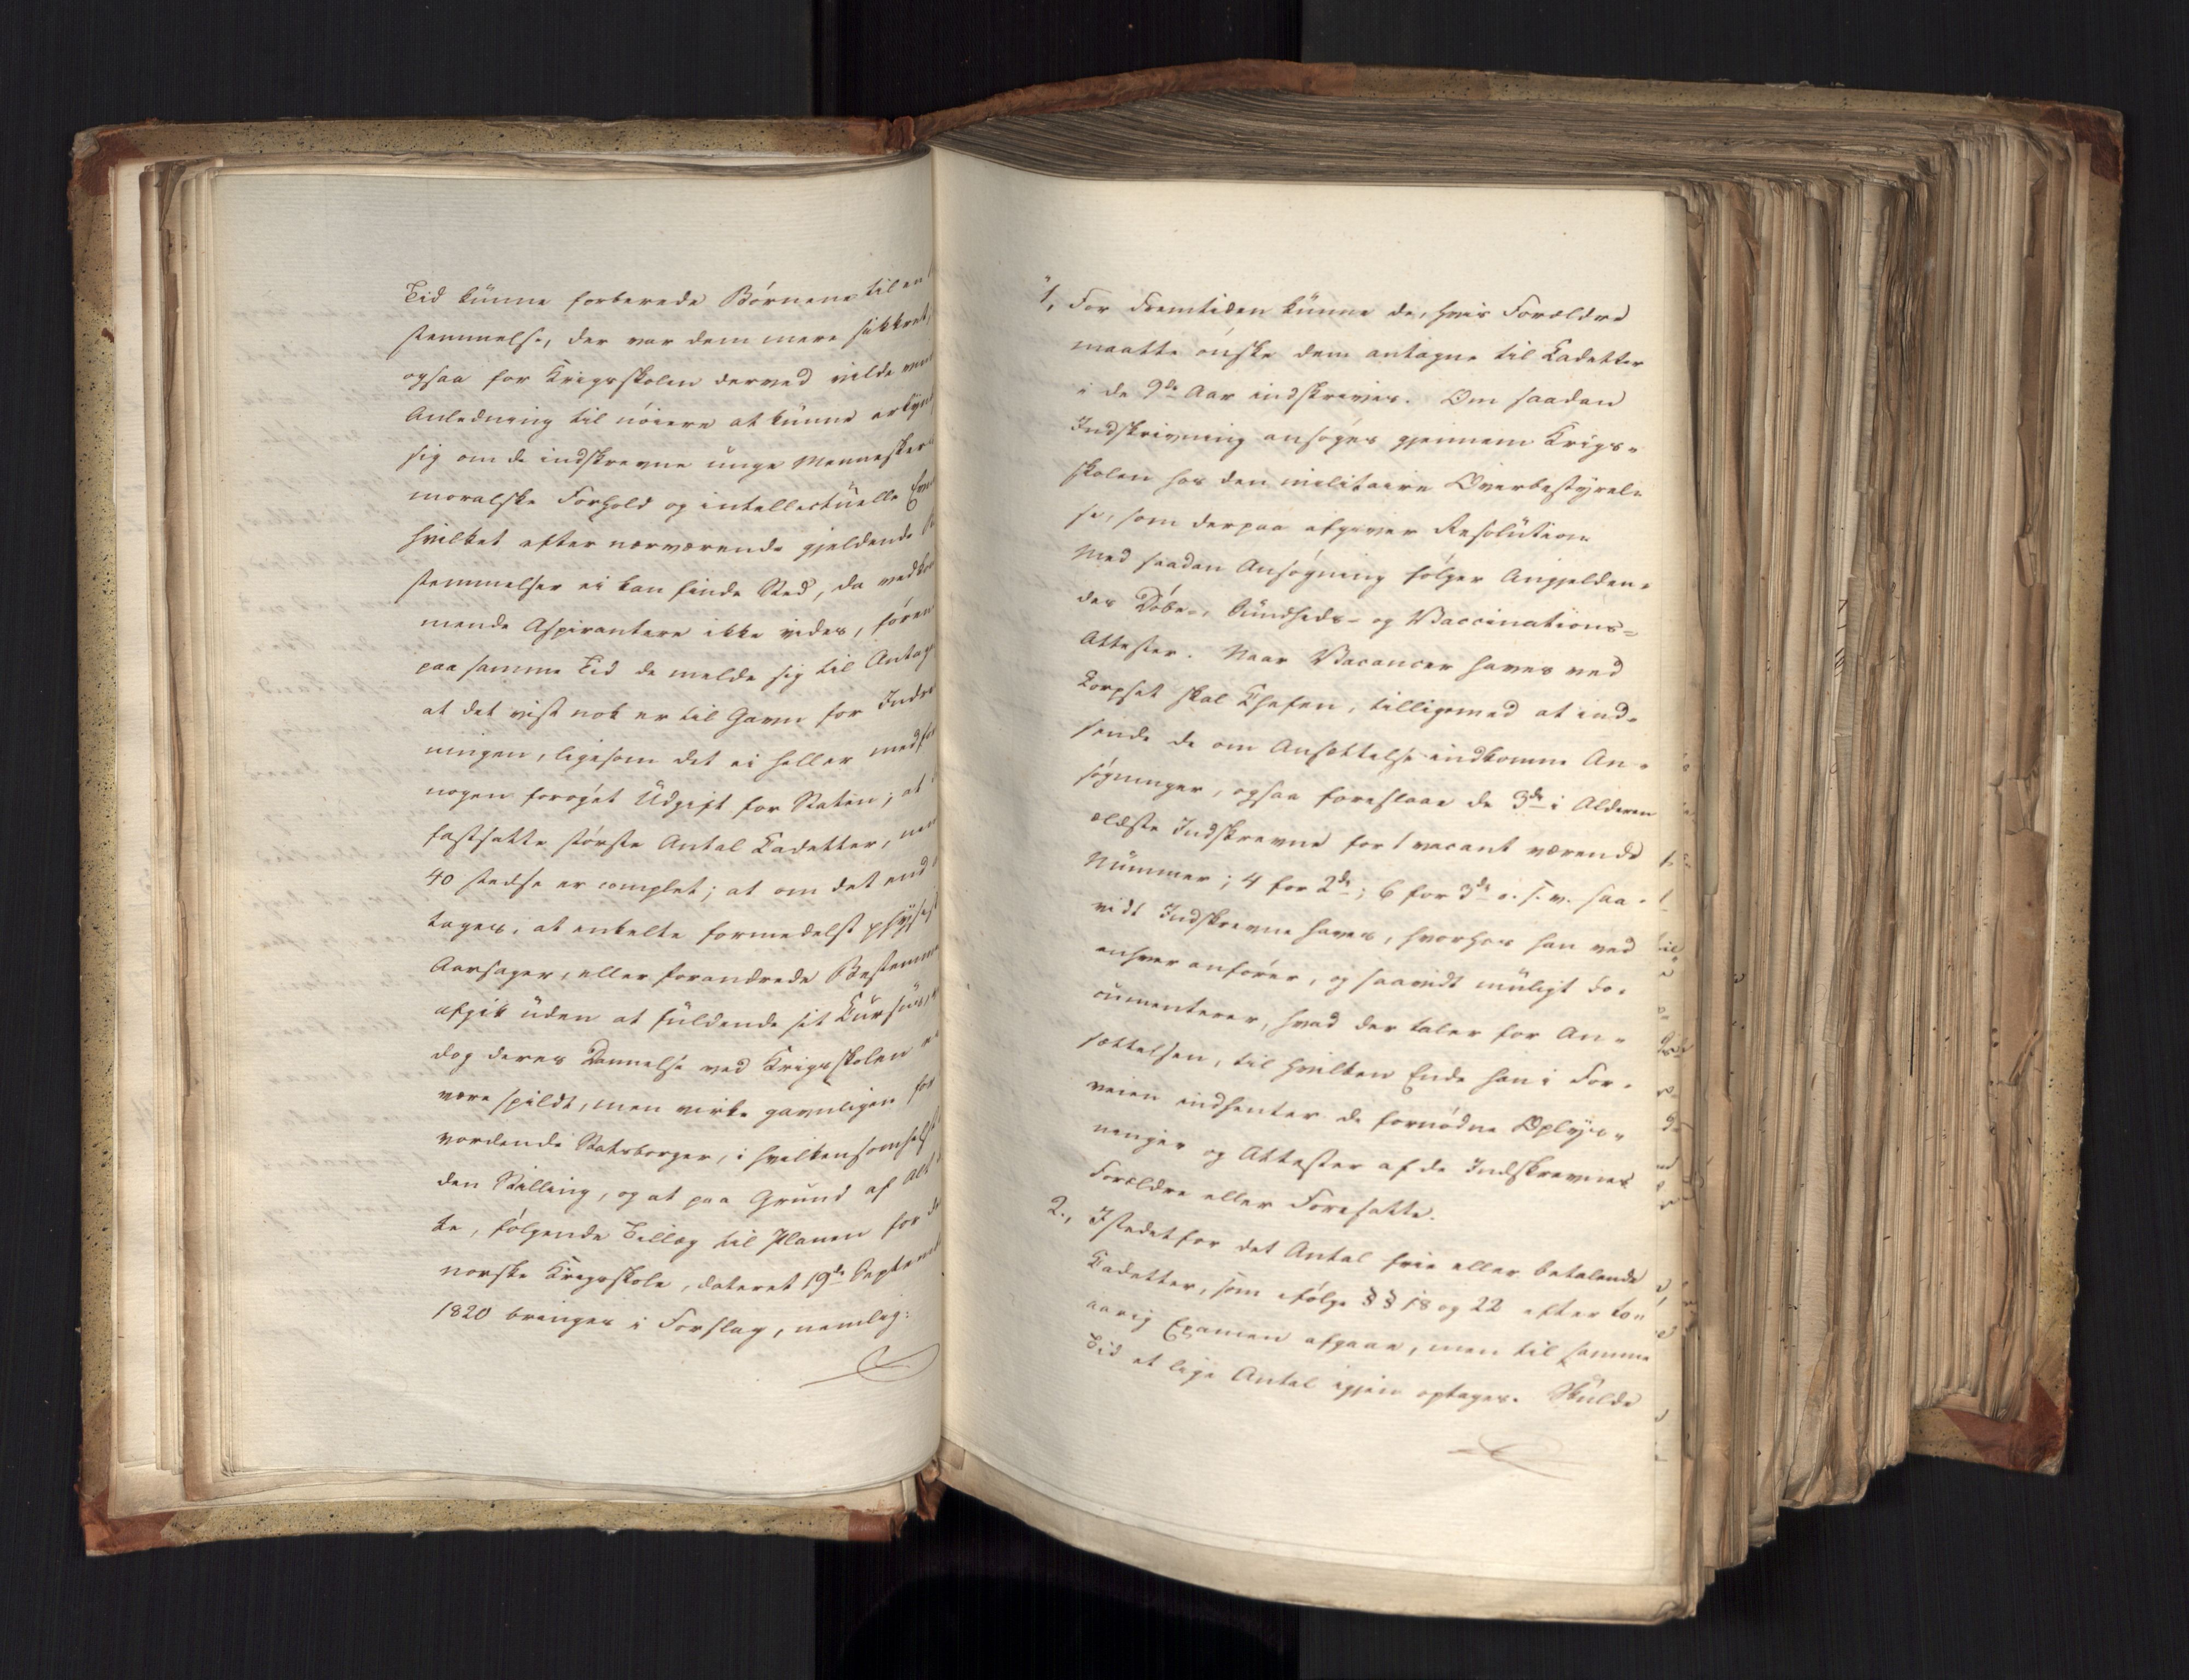 Tid kunne forberede Børnene til en
stemmelse, der var dem mere sikkret,
ogsaa for Krigsskolen derved vilde
Anledning til nøiere at kunne
sig om de indskrevne unge Menneskers
moralske Forhold og intellectuelle
hvilket efter nærværende gjeldende
stemmelser ei kan finde Sted, da
mende Aspirantere ikke vides, føren
paa samme Tid de melde sig til
at det vist nok er til Gavn for
ningen, ligesom det ei heller
nogen forøget Udgift for Staten; at
fastsatte største Antal Cadetter,
40 stedse er complet; at om det end
tages, at enkelte formedelst
Aarsager, eller forandrede
afgik uden at fuldende sit Cursus,
dog deres Dannelse ved Krigsskolen
være spildt, men virke gavnligen for
vordende Statsborger, i hvilkensomhelst
den Stilling, og at paa Grund af Alt
te, følgende Tillæg til Planen for
norske Krigsskole, dateret 19de
1820 bringes i Forslag, nemlig:
1, For Fremtiden kunne de, hvis Forældre
maatte ønske dem antagne til Cadetter
i de 9de Aar indskrives. Om saadan
Indskrivning ansøges gjennem Krigs-
skolen hos den militaire Overbestyrel-
se, som derpaa afgiver Resolution.
Med saadan Ansøgning følger Angjelden-
des Døbe-, Sundheds- og Vaccinations-
Attester. Naar Vacancer haves ved
Corpset skal Chefen, tilligemed at ind-
sende de om Ansættelse indkomne An-
søgninger, ogsaa foreslaae de 3de i Alderen
ældste Indskrevne for 1 vacant værende
Nummer; 4 for 2de; 6 for 3de o. s. v. saa-
vidt Indskrevne haves, hvorhos han ved
enhver anfører, og saavidt muligt do-
cumenterer, hvad der taler for An-
sættelsen, til hvilken Ende han i For-
veien indhenter de fornødne Oplys-
ninger og Attester af de Indskrevnes
Forældre eller Foresatte.
2., Istedetfor det Antal frie eller betalende
Cadetter, som ifølge §§ 18 og 22 efter to-
aarig Examen afgaae, men til samme
Tid et lige Antal igjen optages. Skulde